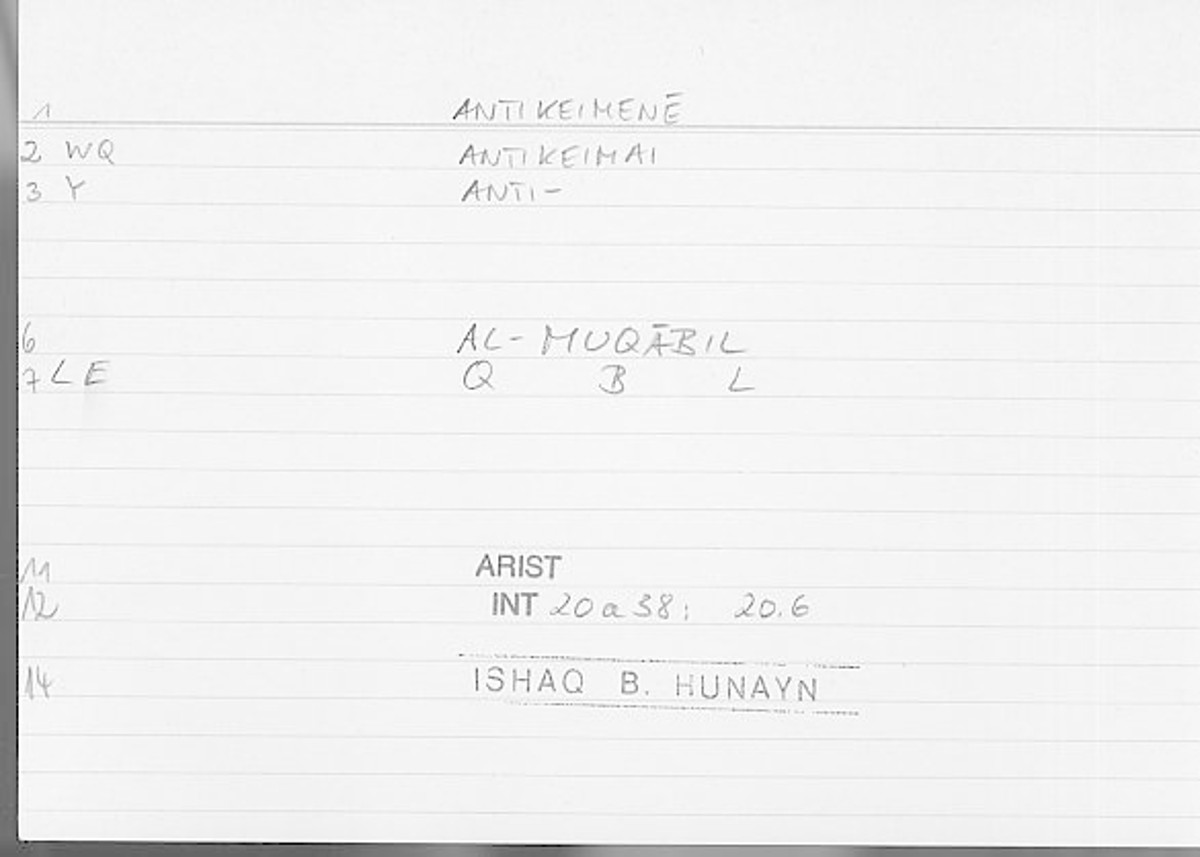 1 ANTIKEIMENĒ
2 WQ ANTIKEIMAI
3 Y ANTI-
6 AL-MUQĀBIL
7 LE Q B L
11 ARIST
12 INT 20a38; 20.6
14 ISHAQ B. HUNAYN